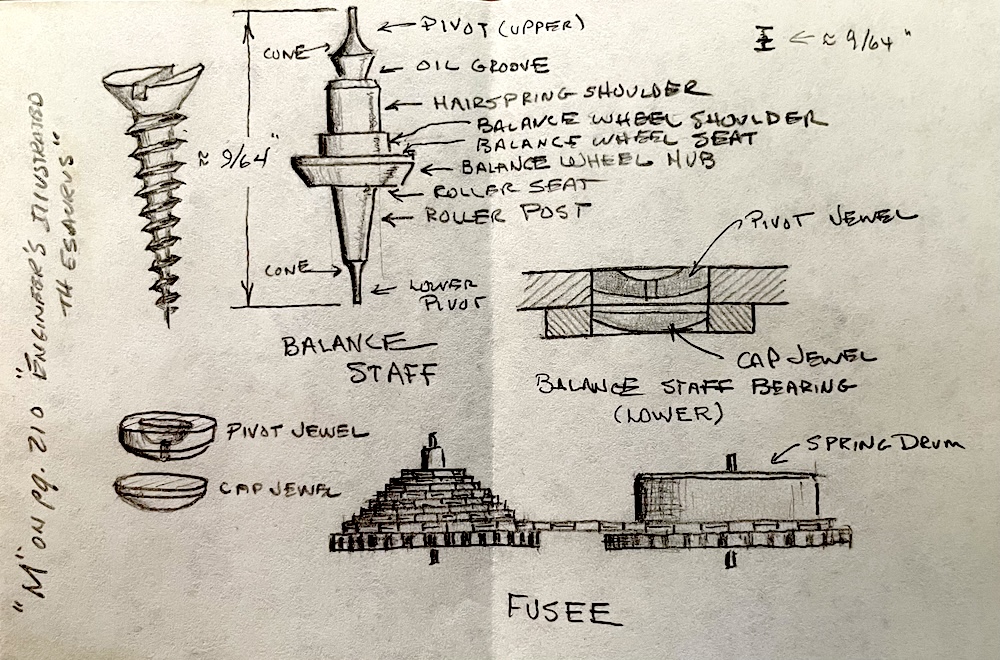 PIVOT (UPPER)
CONE
OIL GROOVE
HAIRSPRING SHOULDER
BALANCE WHEEL SHOULDER
BALANCE WHEEL SEAT
BALANCE WHEEL HUB
ROLLER SEAT
ROLLER POST
CONE
LOWER
PIVOT
≈ 9/64"
BALANCE
STAFF
≈ 9/64"
PIVOT JEWEL
CAP JEWEL
BALANCE STAFF BEARING
(LOWER)
PIVOT JEWEL
CAP JEWEL
SPRING DRUM
FUSEE
"M" ON pg. 210 "ENGINEER'S ILLUSTRATED
THESAURUS"